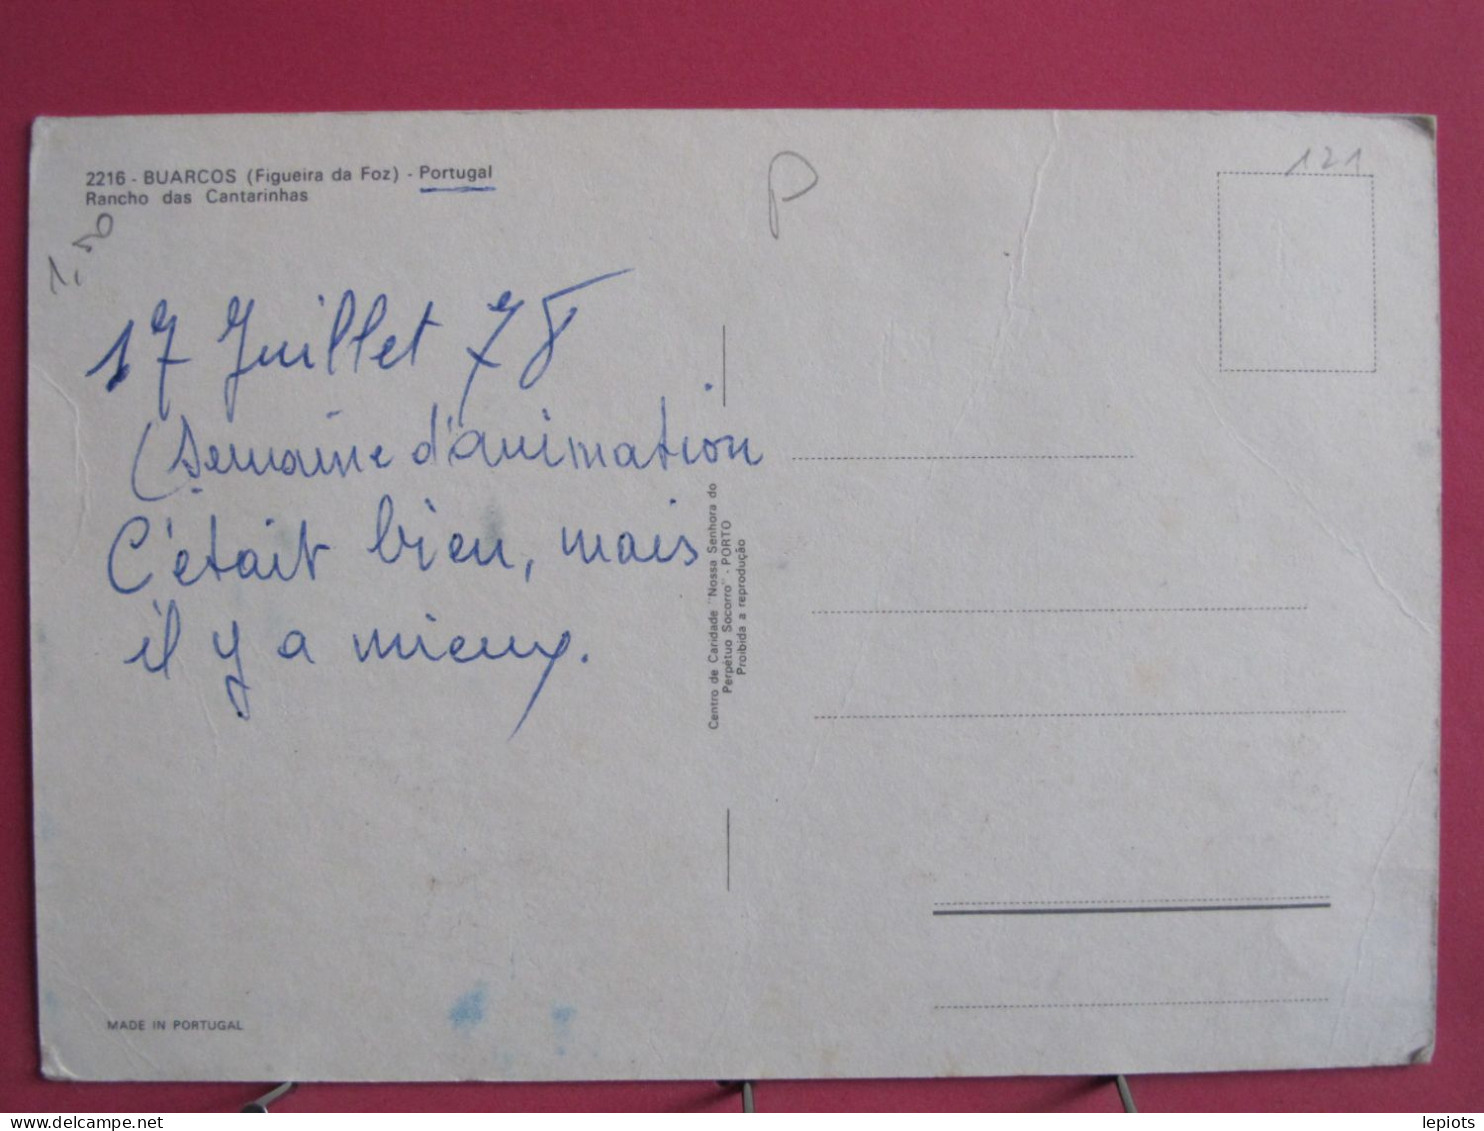 2216 - BUARCOS (Figueira da Foz) - Portugal
Rancho das Cantarinhas
1,50
P
121
17 Juillet 78
(Semaine d'animation
C'était bien, mais
il y a mieux.
Centro de Caridade "Nossa Senhora do
Perpétuo Socorro" - PORTO
Proibida a reprodução
MADE IN PORTUGAL
www.delcampe.net
lepiots